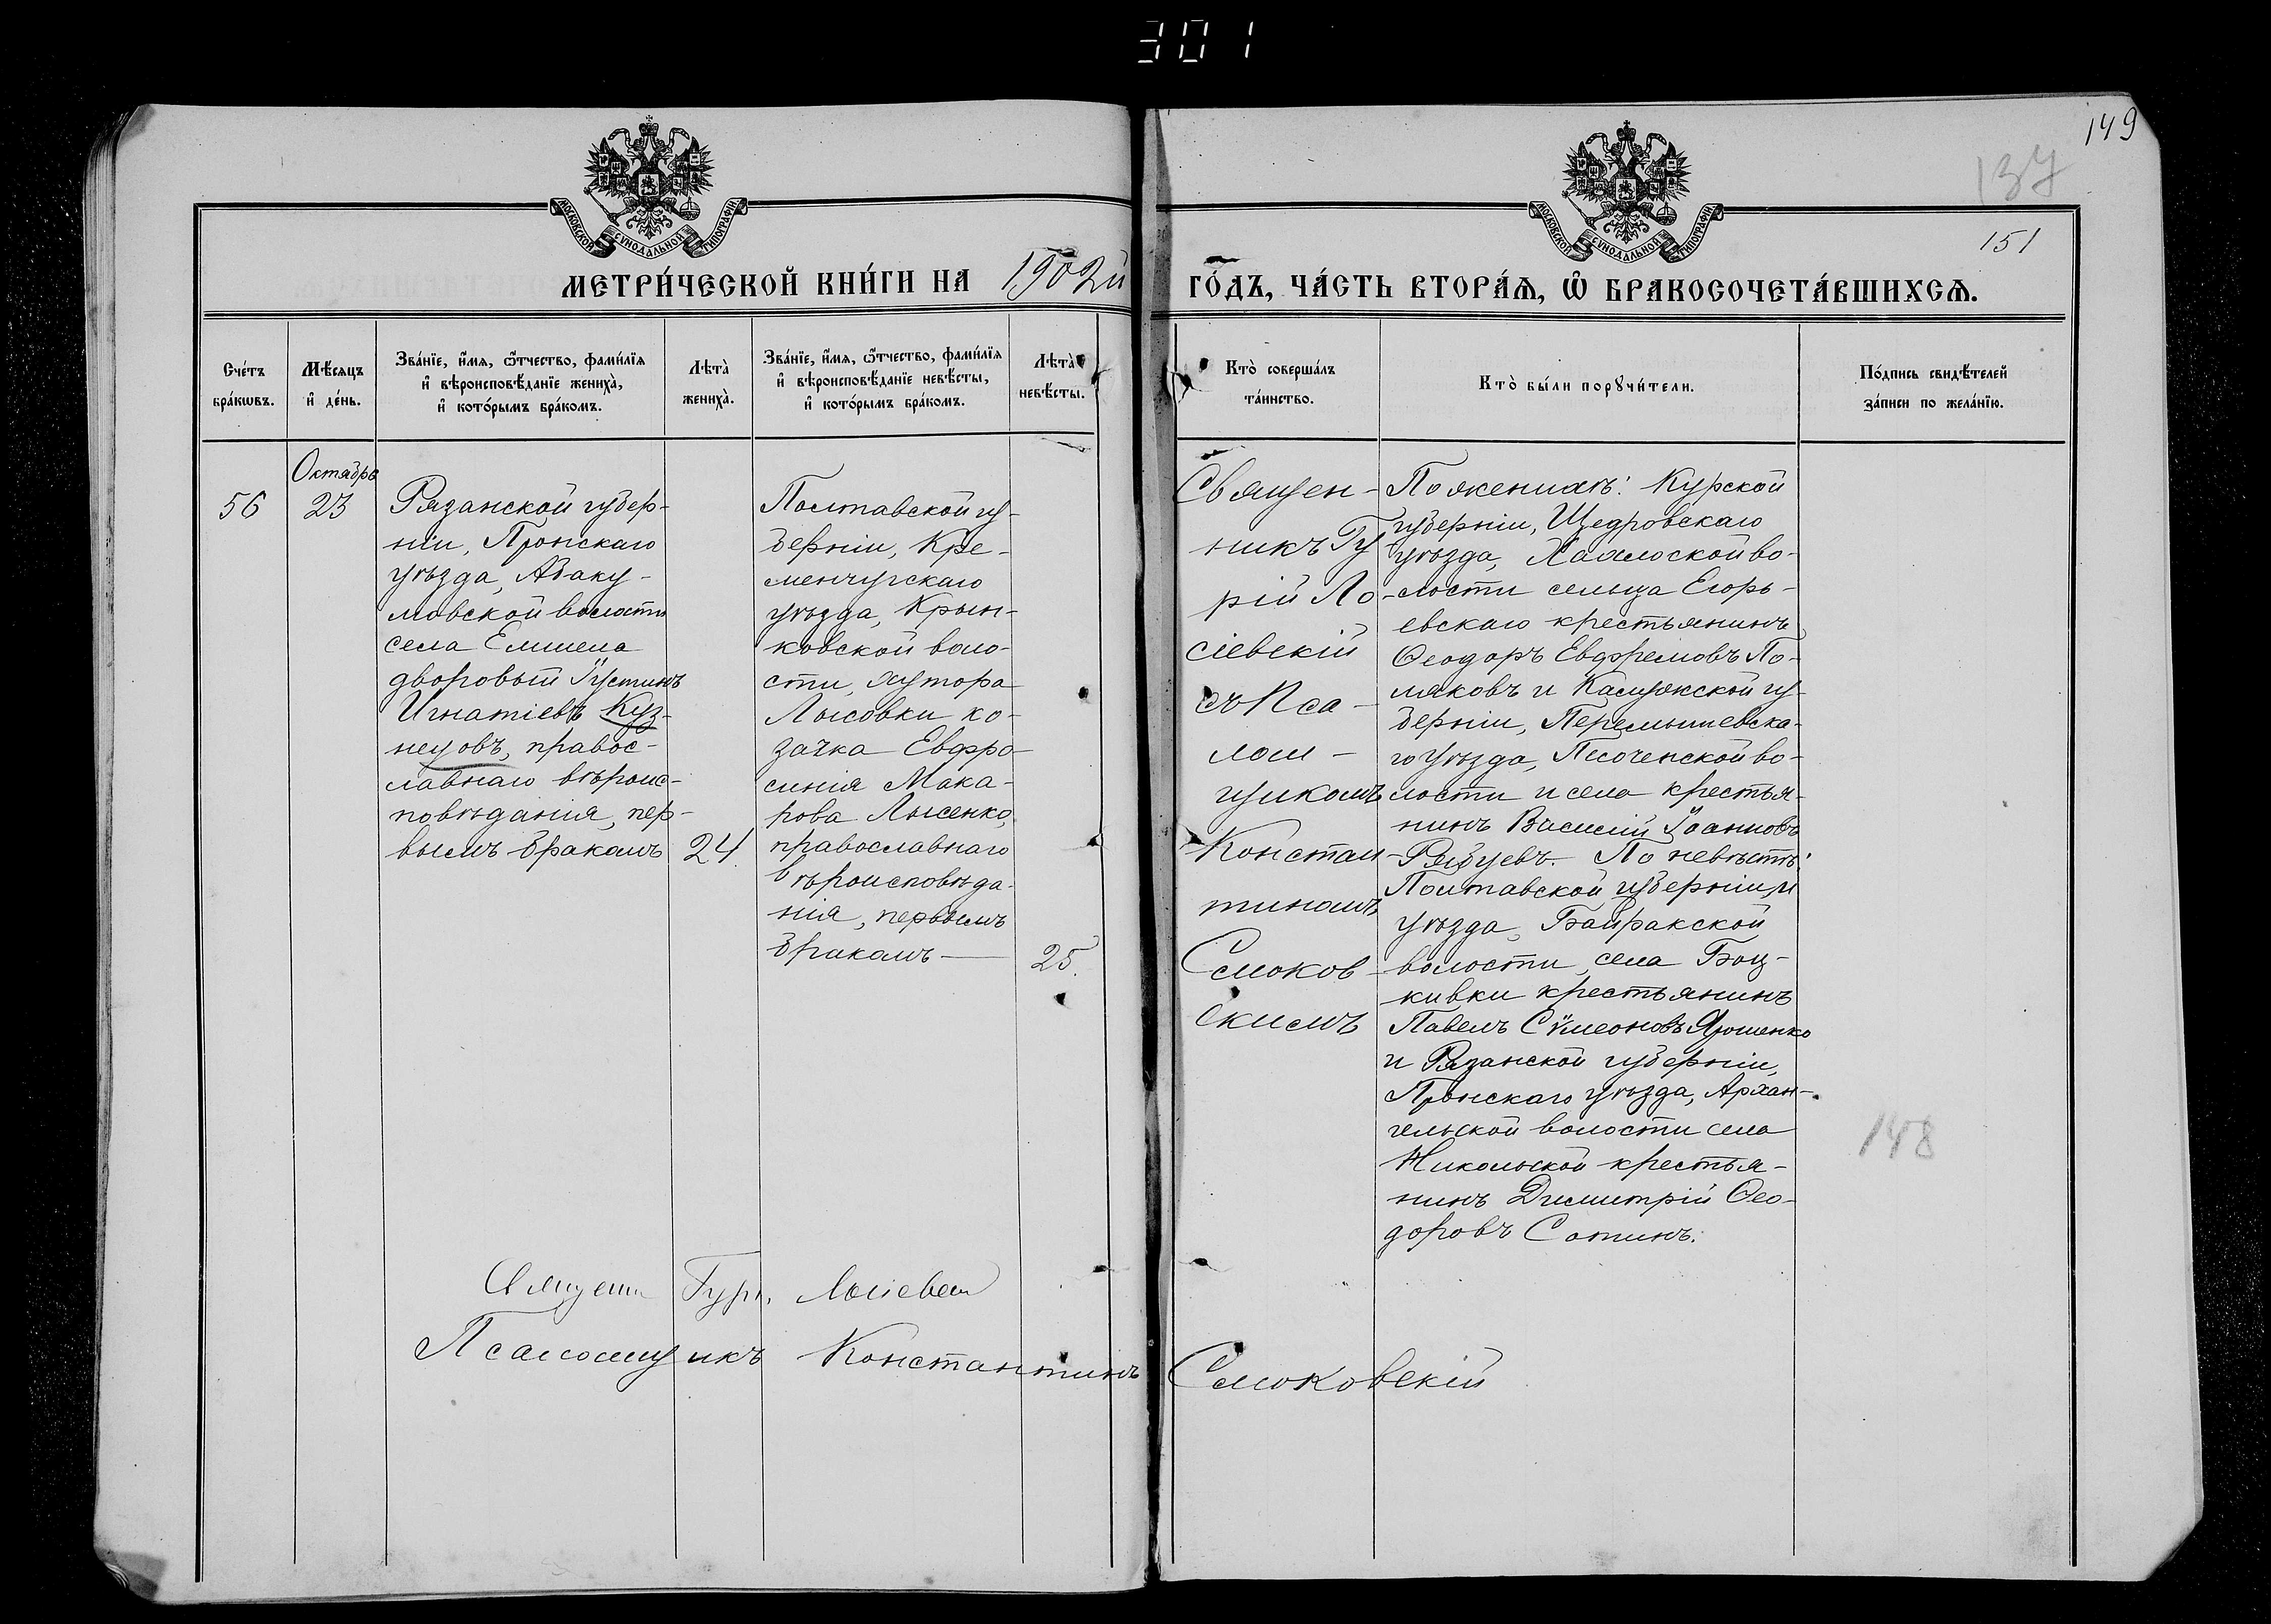 301
149
137
151
МОСКОВСКОЙ СѴНОДАЛЬНОЙ ТИПОГРАФІИ
МОСКОВСКОЙ СѴНОДАЛЬНОЙ ТИПОГРАФІИ
МЕТРИ́ЧЕСКОЙ КНИ́ГИ НА 1902й
ГО́ДЪ, ЧА́СТЬ ВТОРА́Ѧ, Ѽ БРАКОСОЧЕТА́ВШИХСѦ.
Сче́тъ
бра́кωвъ.
Мѣ́сяцъ
и҆ де́нь.
Зва́нїе, и҆́мя, ѻ҆́тчество, фами́лїя
и҆ вѣроисповѣ́данїе жениха̀,
и҆ кото́рымъ бра́комъ.
Лѣта̀
жениха̀.
Зва́нїе, и҆́мя, ѻ҆́тчество, фами́лїя
и҆ вѣроисповѣ́данїе невѣ́сты,
и҆ кото́рымъ бра́комъ.
Лѣта̀
невѣ́сты.
Кто̀ соверша́лъ
та́инство.
Кто̀ бы́ли порꙋчи́тели.
По́дпись свидѣ́телей
за́писи по жела́нїю.
56
Октябрь
23
Рязанской губер-
ніи, Пронскаго
уѣзда, Абаку-
мовской волости
села
дворовый Їустинъ
Игнатіевъ Куз-
нецовъ, правос-
лавнаго вѣроис-
повѣданія, пер-
вымъ бракомъ
24.
Полтавской гу-
берніи, Кре-
менчугскаго
уѣзда, Крын-
ковской воло-
сти, хутора
Лысовки ко-
зачка Евфро-
синія Мака-
рова Лысенко,
православнаго
вѣроисповѣда-
нія, первымъ
бракомъ —
25.
Священ-
никъ Гу
рій Ло-
сіевскій
съ Пса-
лом-
щикомъ
Констан-
тиномъ
Смоков-
скимъ
По женихѣ: Курской
губерніи, Щегровскаго
уѣзда, во-
лости сельца Егорь-
евскаго крестьянинъ
Ѳеодоръ Евфремовъ По-
ляковъ и Калужской гу-
берніи, Перемышлевска-
го уѣзда, Песоченской во-
лости и села крестья-
нинъ Василій Їоанновъ
По невѣстѣ:
Полтавской губерніи и
уѣзда, Байракской
волости, села Боц-
кивки крестьянинъ
Павелъ Сѵмеоновъ Ярошенко
и Рязанской губерніи,
Пронскаго уѣзда, Архан-
гельской волости села
Никольской крестья-
нинъ Димитрій Ѳео-
доровъ Сотинъ.
148
Священн. Гурій Лосіевскій
Псаломщикъ Константинъ Смоковскій